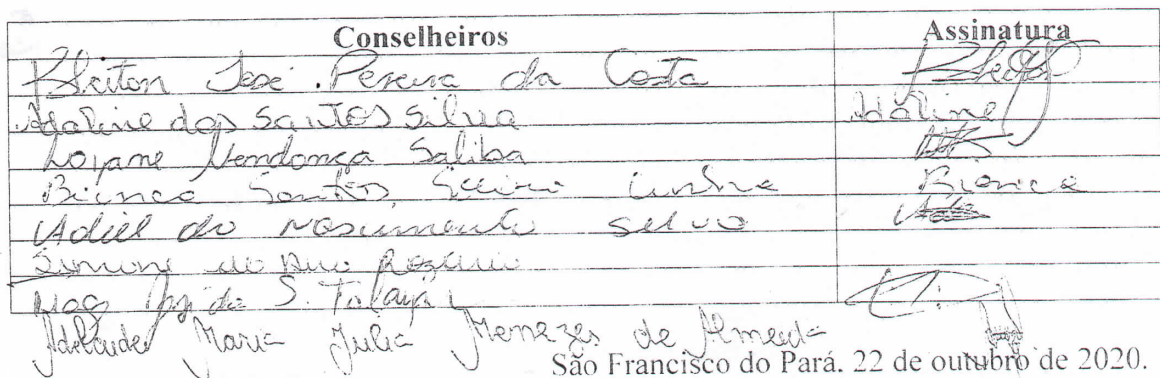 Conselheiros Assinatura
Kleiton José Pereira da Costa
Adaline dos Santos Silva Adaline
Loyane Mendonça Saliba
Bianca Santos Cunha Bianca
Adiel do Nascimento Silva
Simone do Rosário
S.
Adelaide Maria Julia Menezes de Almeida
São Francisco do Pará. 22 de outubro de 2020.